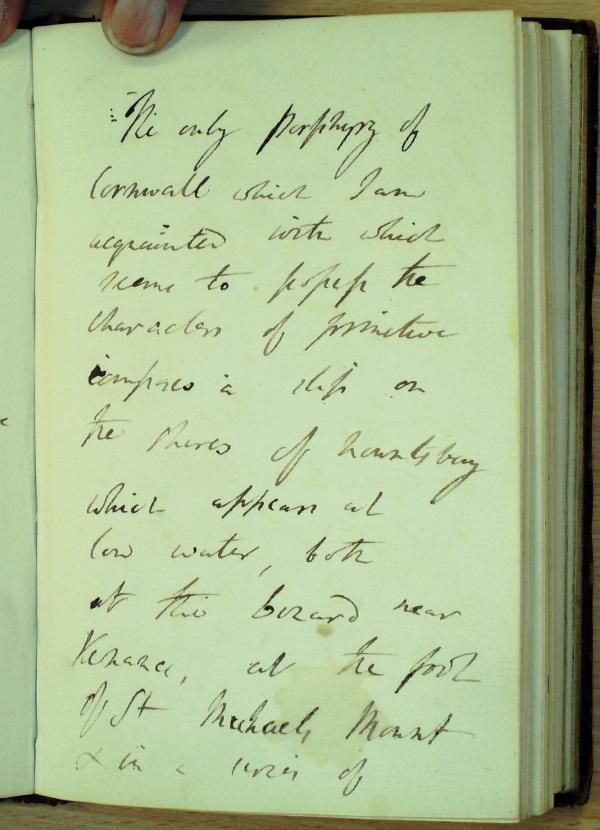 The only porphyry of
Cornwall which I am
acquainted with which
seems to possess the
characters of primitive
is a cliff on
the shores of Mountsbay
which appears at
low water, both
at the Lizard near
Kynance, at the foot
of St Michaels Mount
& in a series of